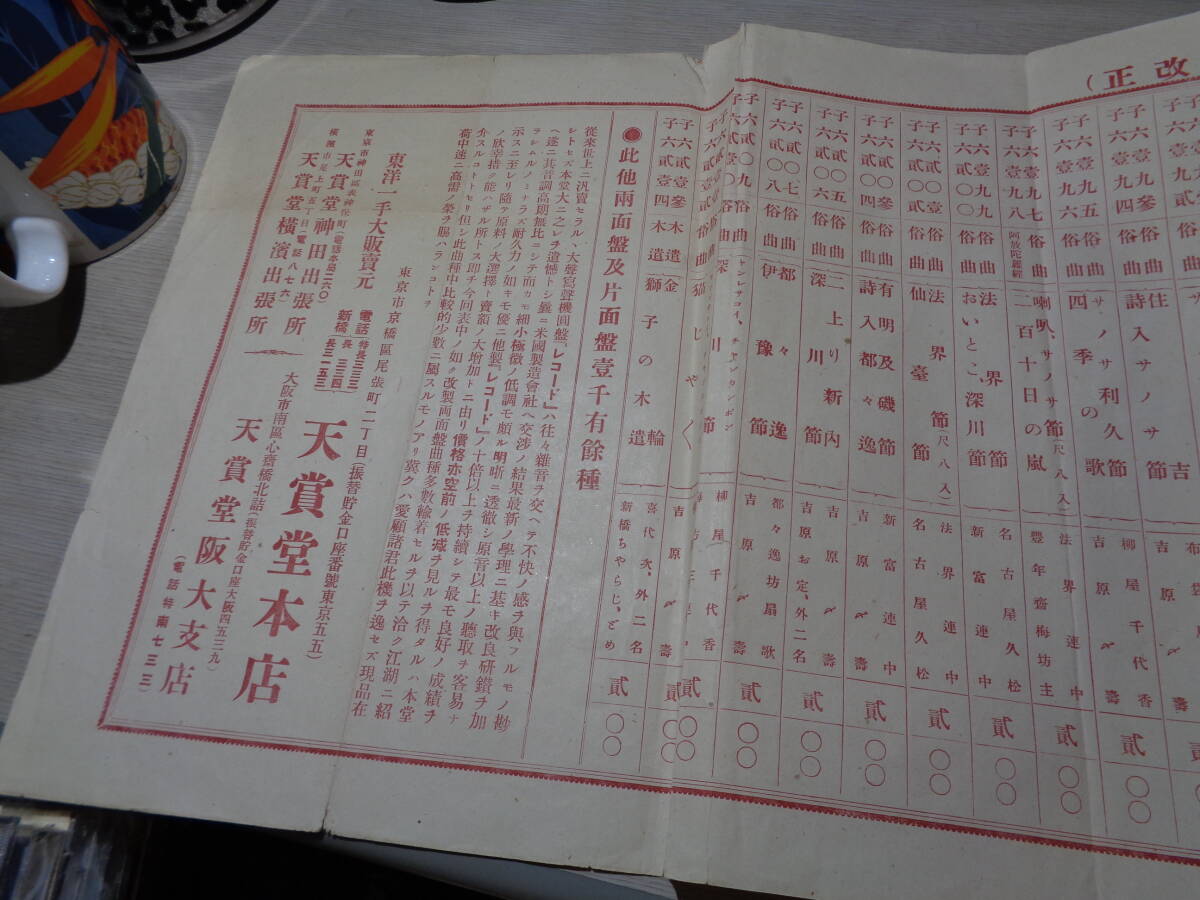 (正改
子六壹九五 俗曲
子六壹九六 俗曲 サノサ利久節 四季の歌 柳屋千代香 吉原〆壽 貳〇〇
子六壹九七 俗曲
子六壹九八 阿放陀羅経 喇叭、サノサ節(尺八入) 二百十日の嵐 法界連中 豊年齋梅坊主 貳〇〇
子六壹九九 俗曲
子六貳〇〇 俗曲 法界節 おいとこ、深川節 名古屋久松 新富連中 貳〇〇
子六貳〇壹 俗曲 法界節(尺八入) 仙臺節 法界連中 名古屋久松 貳〇〇
子六貳〇參
子六貳〇四 俗曲 有明及磯節 詩入都々逸 新富連中 吉原〆壽 貳〇〇
子六貳〇五
子六貳〇六 俗曲 二上り新内 深川節 吉原〆壽 吉原お定、外二名 貳〇〇
子六貳〇七 俗曲
子六貳〇八 俗曲 都々逸 伊豫節 都々逸坊扇歌 吉原〆壽 貳〇〇
子六貳〇九 俗曲 (トンレサコイ、チヤンカンボン 深川節 柳屋千代香 貳〇〇
子六貳壹四 木遣 木遣 金輪 獅子の木遣 喜代次、外二名 新橋ちやらじ、どめ 貳〇〇
◉此他兩面盤及片面盤壹千有餘種
從來世上ニ汎賣セラル、大聲寫聲機圓盤『レコード』ハ往々雜音ヲ交ヘテ不快ノ感ヲ與フルモノ尠
シトセズ本堂大ニ之レヲ遺憾トシ曩ニ米國製造會社ヘ交渉ノ結果最新ノ學理ニ基キ改良研鑚ヲ加
ヘ遂ニ其音調高朗無比ニシテ而カモ細小極微ノ低調モ頗ル明晰ニ透徹シ原音以上ノ聽取ヲ容易ナ
ラシムルノミナラズ耐久力ノ如キモ優ニ他製『レコード』ノ十倍以上ヲ持續シテ最モ良好ノ成績ヲ
示スニ至レリ隨テ原料ノ大選擇ト賣額ノ大増加ニ由リ價格亦空前ノ低減ヲ見ルヲ得タルハ本堂
ノ欣幸措ク能ハザル所トス即チ今回表中ノ如ク改製兩面盤曲種多數輸着セルヲ以テ洽ク江湖ニ紹
介スルコトトセリ但シ此曲種中比較的少數ニ屬スルモノアリ冀クハ愛顧諸君此機ヲ逸セズ現品在
荷中速ニ高需ノ榮ヲ賜ハランコトヲ
東洋一手大販賣元
東京市京橋區尾張町二丁目(振替貯金口座番號東京五五)
電話 特長三三三 長三三四 新橋 長三一五三
天賞堂本店
東京市神田區表神保町(電話本局二六〇)
天賞堂神田出張所
橫濱市尾上町五丁目(電話八七六)
天賞堂橫濱出張所
大阪市南區心齋橋北詰(振替貯金口座大阪四五三九)
天賞堂大阪支店
(電話特南七三三)